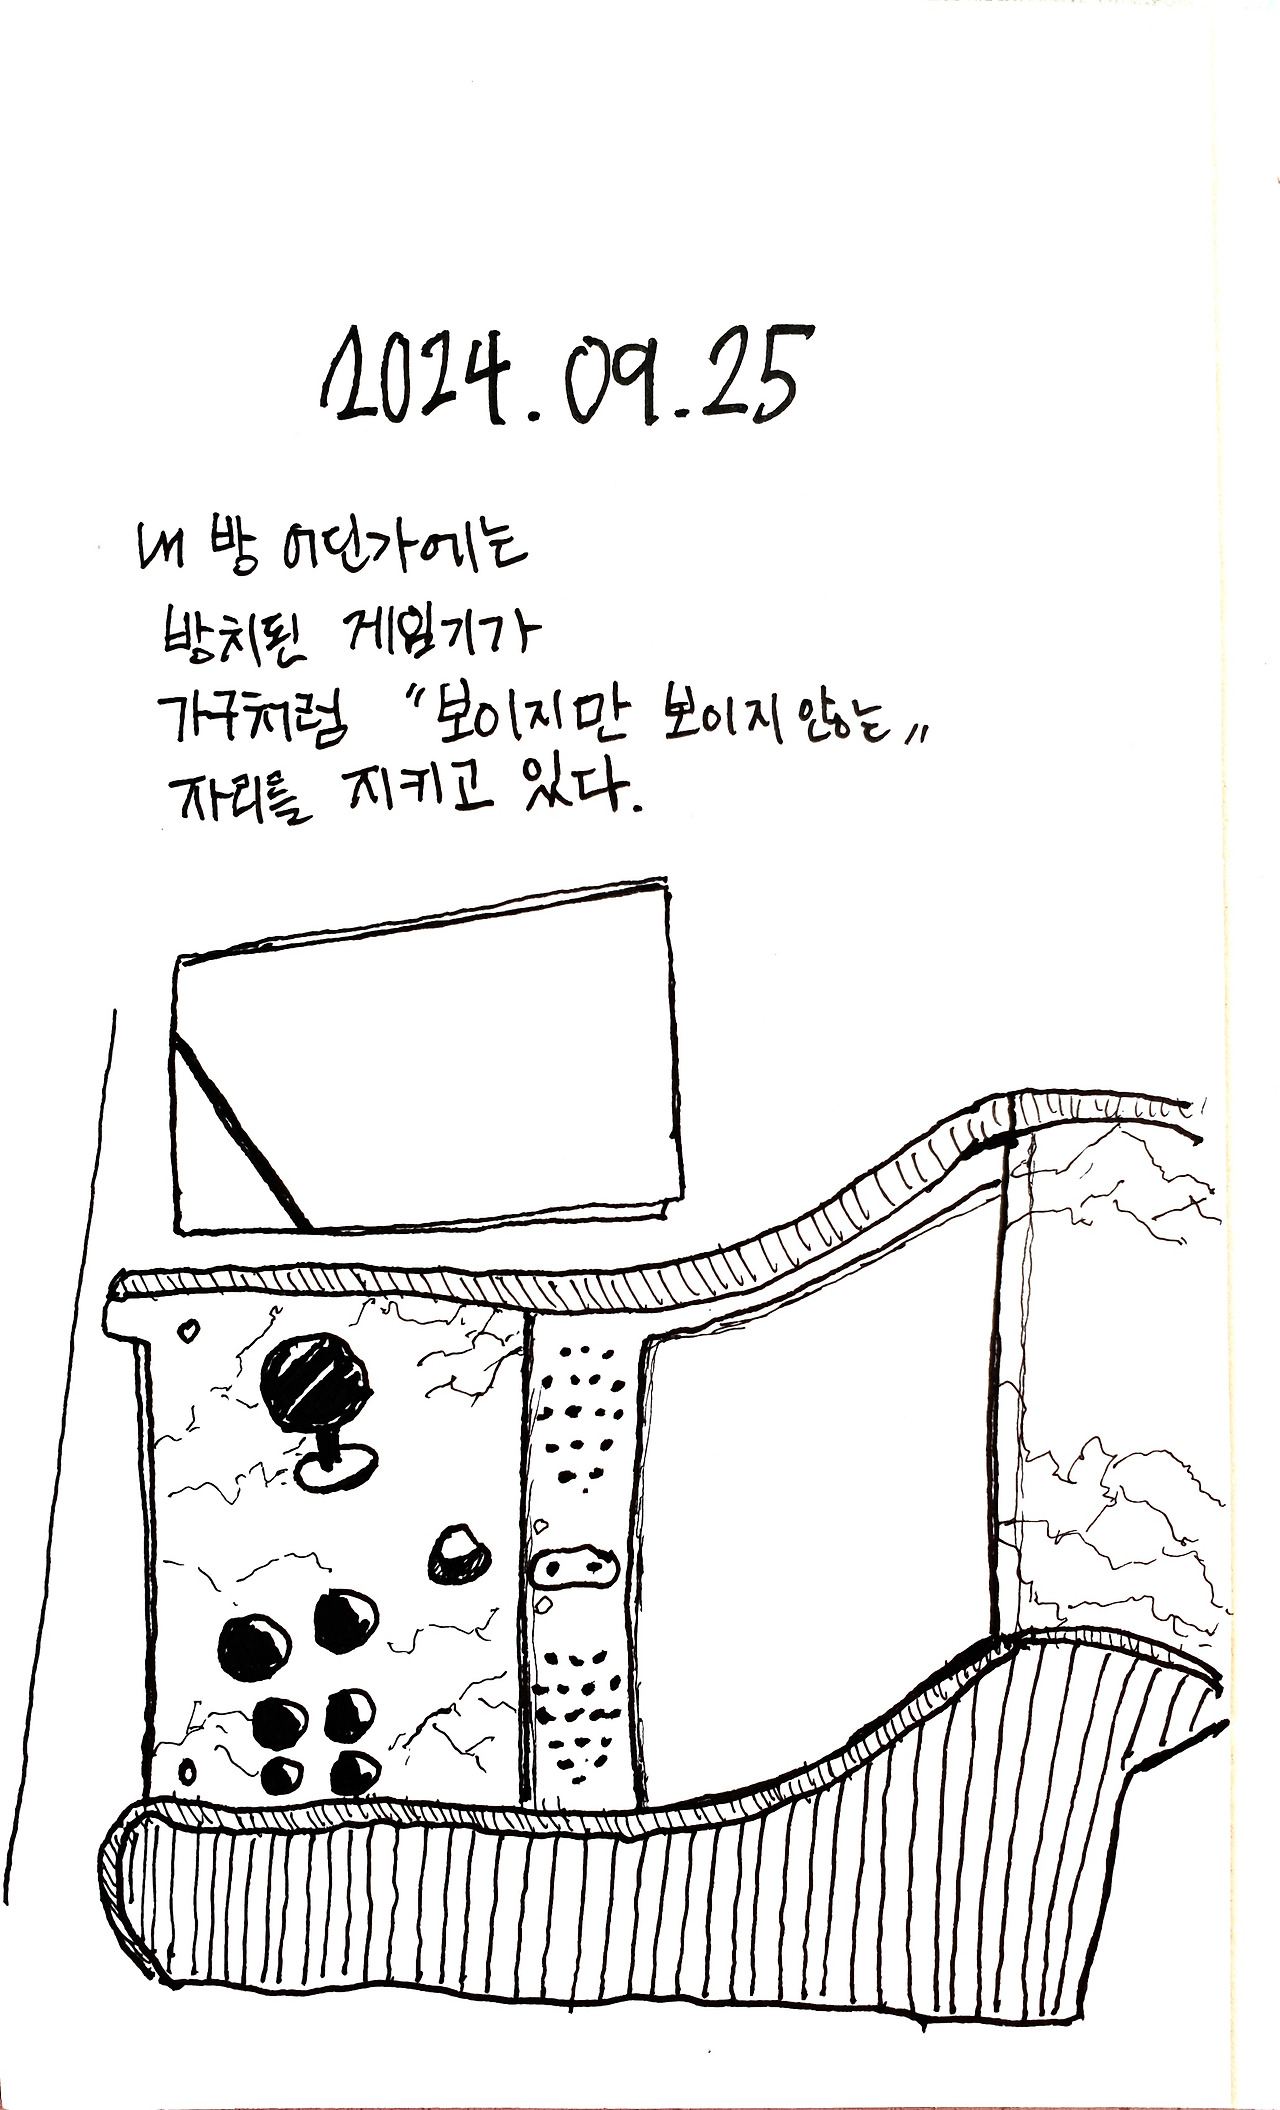 2024.09.25
내 방 어딘가에는
방치된 게임기가
가구처럼 "보이지만 보이지 않는"
자리를 지키고 있다.